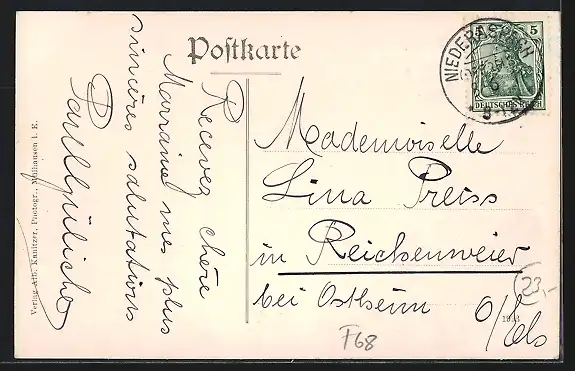 Postkarte
NIEDERASPACH
5
DEUTSCHES REICH
Recevez chère
Marraine mes plus
sincères salutations
Mademoiselle
Lina Preiss
in Reichenweier
bei Ostheim
O/Els
23,-
F68
Verlag Alb. Kanitzer, Photogr., Mülhausen i. E.